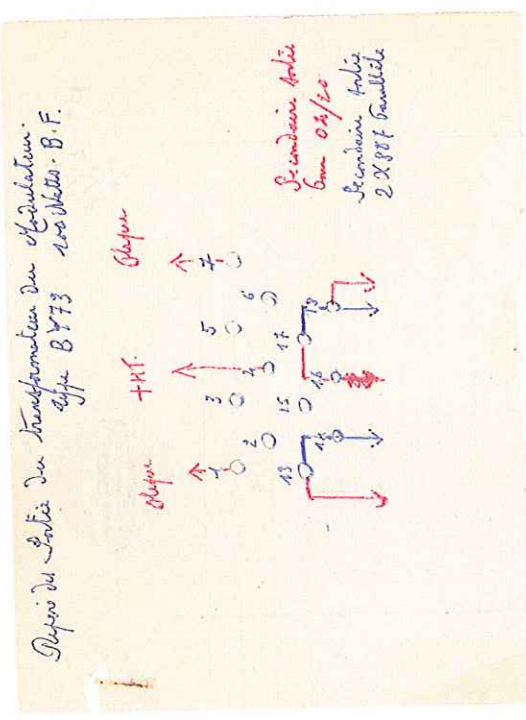 Repère des Sorties du transformateur du Modulateur.
type BY73 100 Watts. B.F.
Plaque +HT. Plaque
1 2 3 4 5 6 7
13 14 15 16 17 18
Secondaire Sortie
Secondaire Sortie
2 X 807 Parallèle